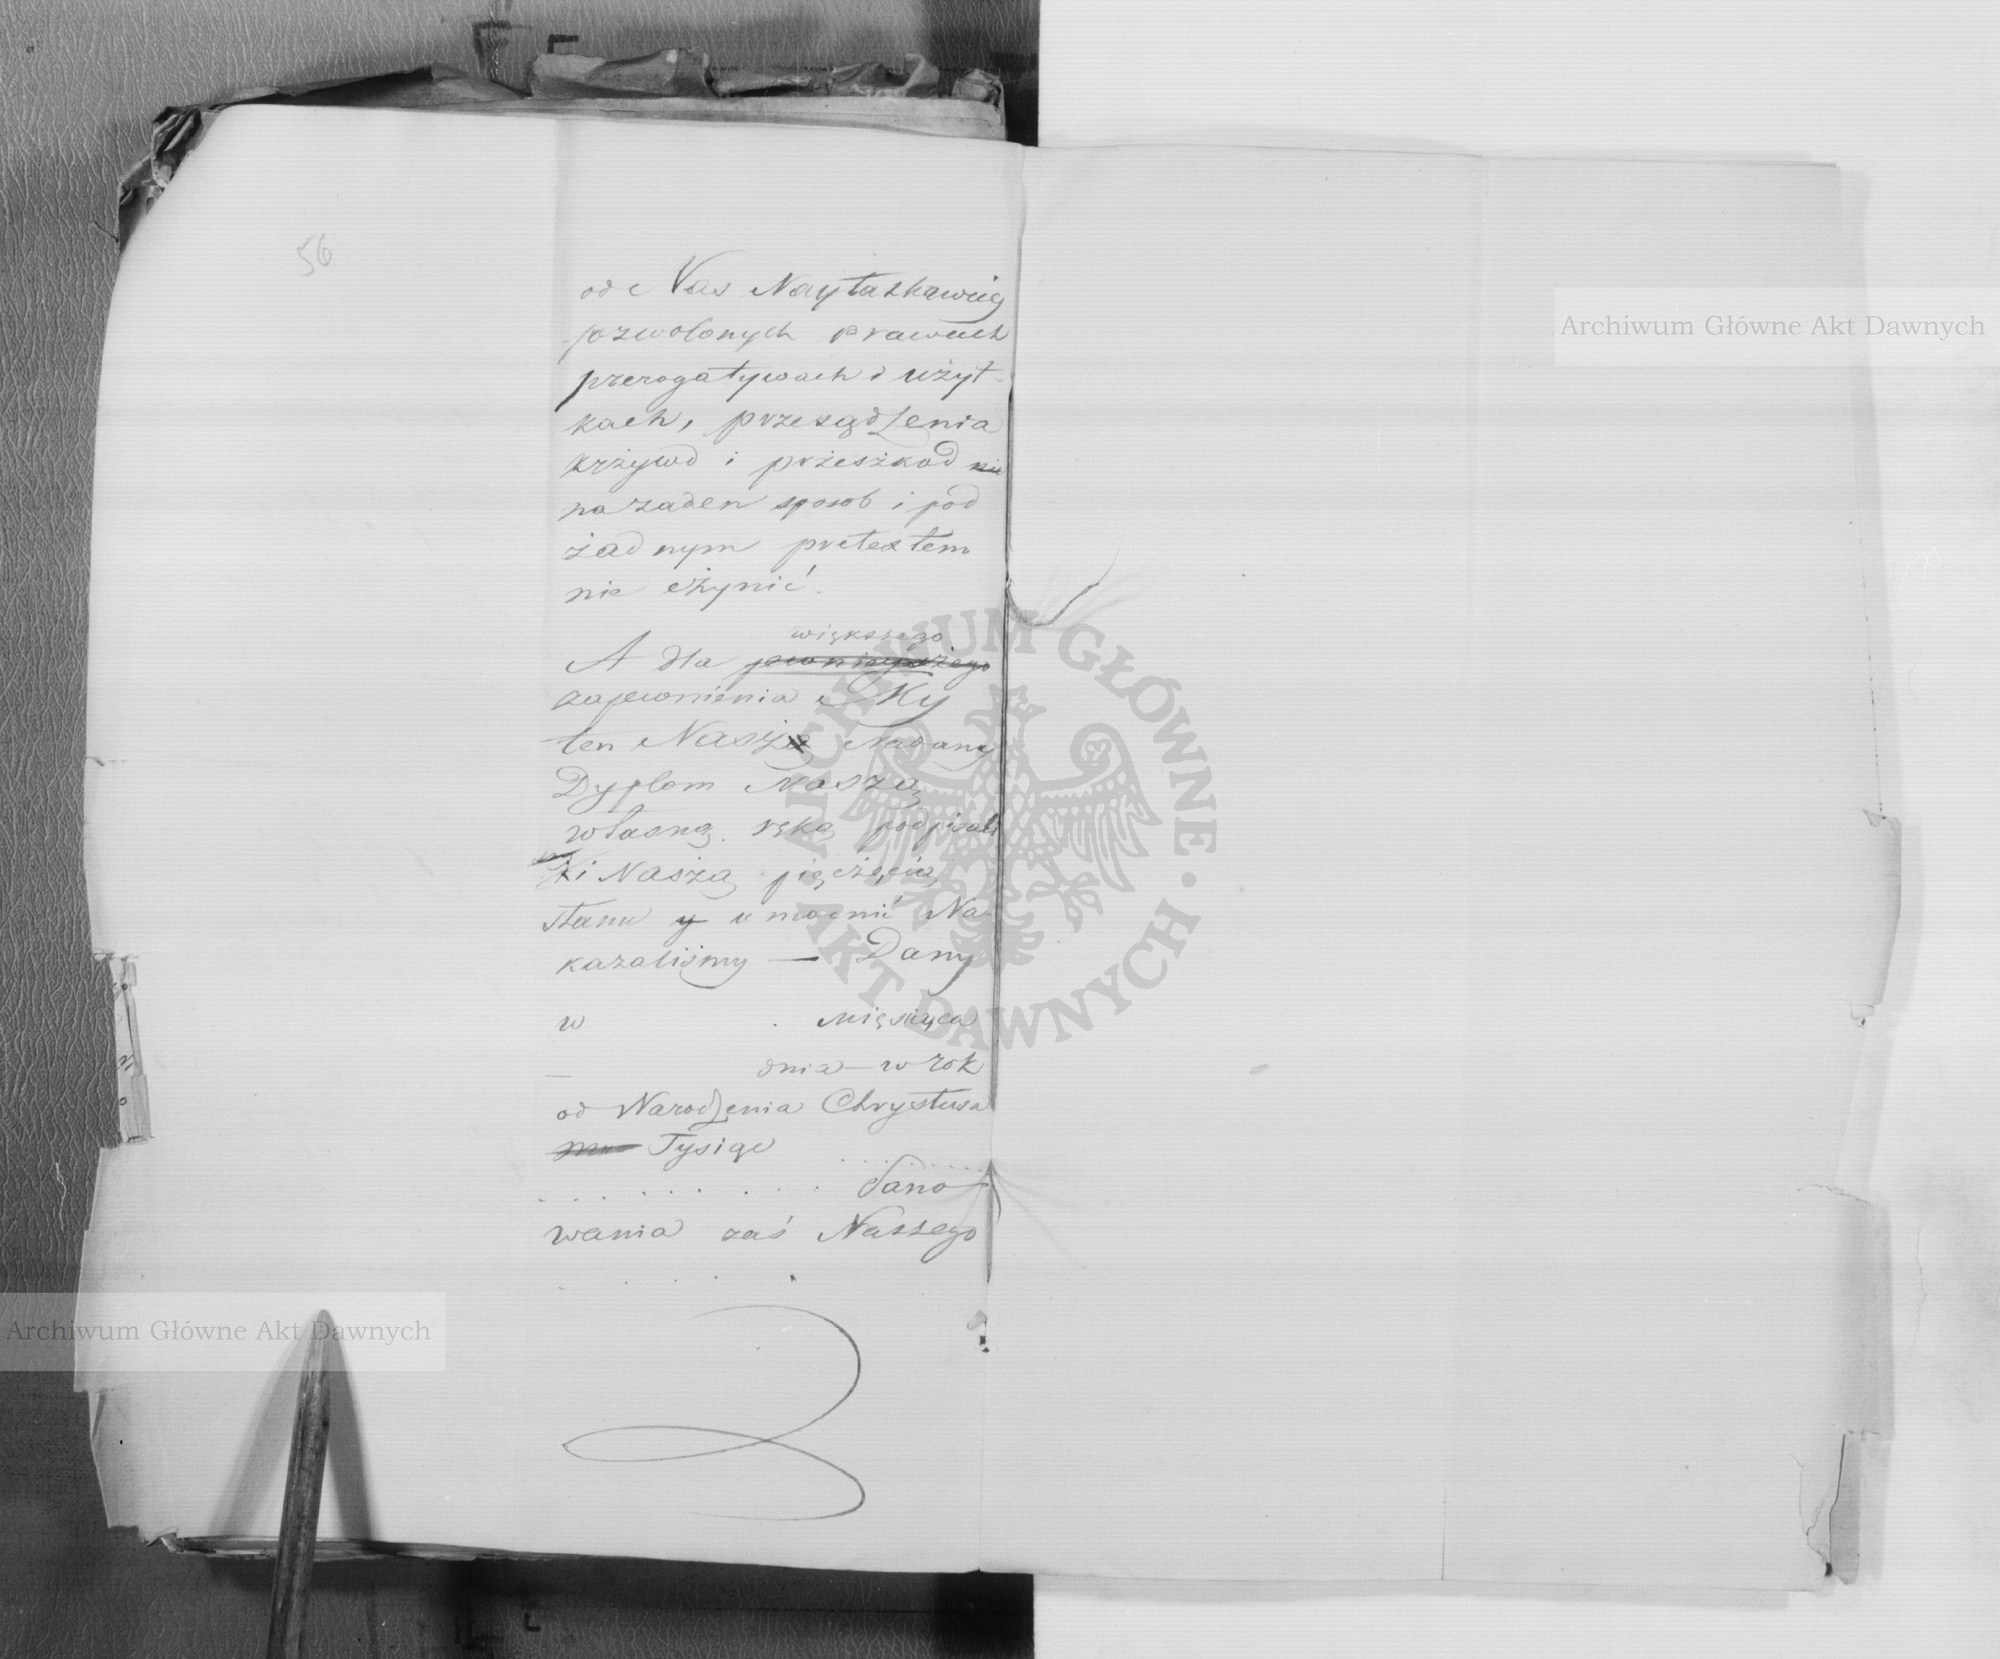 56
od Nas Nayłaskawiey
pozwolonych prawach
prerogatywach i użyt-
kach, przesądzenia
krżywd i prżeszkod nie
na zaden sposob i pod
żadnym pretextem
nie czynić.
większego
A dla pewnieyszego
zapewnienia My
ten Nasz Nadany
Dyplom Naszą
własną ręką podpisali
i Naszą pięczęcią
stanu y umocnić Na-
kazaliśmy — Dany
w . Miesiąca
— dnia — w rok
od Narodzenia Chrystusa
Tysiąc . . . . . .
. . . . . . . Pano-
wania zaś Naszego
. . . . .
Archiwum Główne Akt Dawnych
Archiwum Główne Akt Dawnych
ARCHIWUM GŁÓWNE · AKT DAWNYCH ·